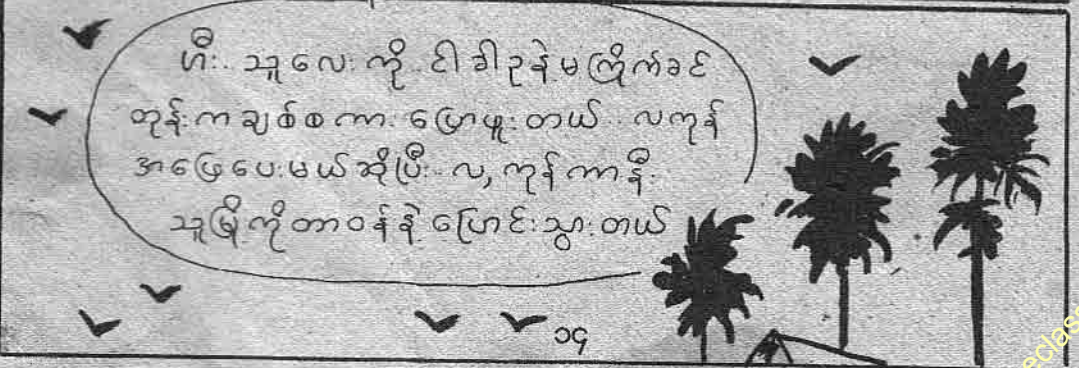 ဟီး.. သူလေးကို.. ငါ ခါဥနဲ့မကြိုက်ခင်
တုန်းကချစ်စကားပြောဖူးတယ်.. လကုန်
အဖြေပေးမယ်ဆိုပြီး.. လ,ကုန်ကာနီး
သူမြို့ကိုတာဝန်နဲ့ပြောင်းသွားတယ်
၁၄